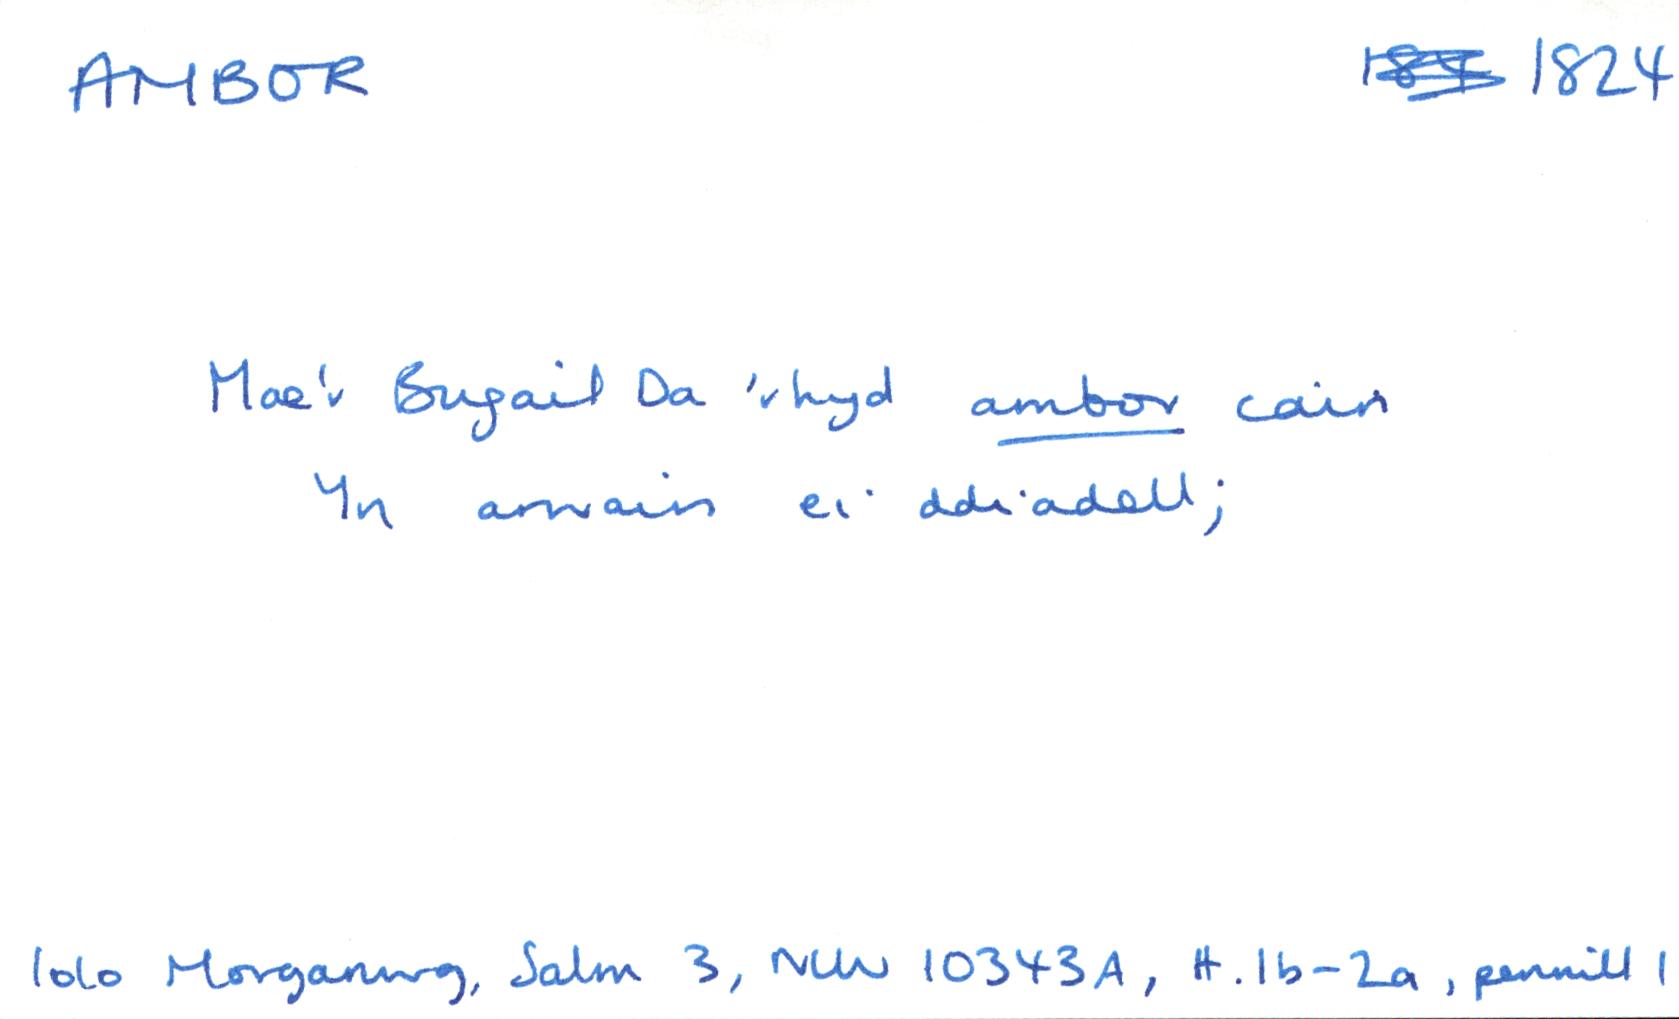 AMBOR 1824
Mae'r Bugail Da 'rhyd ambor cain
Yn arwain ei ddiadell;
Iolo Morganwg, Salm 3, NLW 10343A, ff.1b-2a, pennill 1